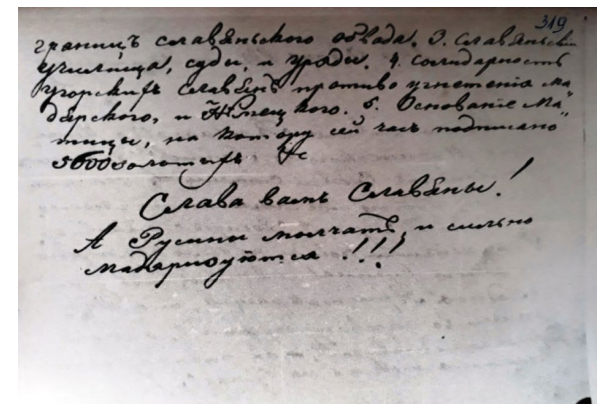 319
границъ славѣньского обвода. 3. Славѣньски
училища, суды, и уряды. 4. солидарность
угорскихъ Славѣнъ противо угнетенія Ма„
дярского, и Нѣмецкого. 5. Основаніе Ма„
тицы, на котору сей часъ подписано
5600 золотыхъ
Слава вамъ Славѣны!
А Русины молчатъ, и сильно
мадяризуются !!!